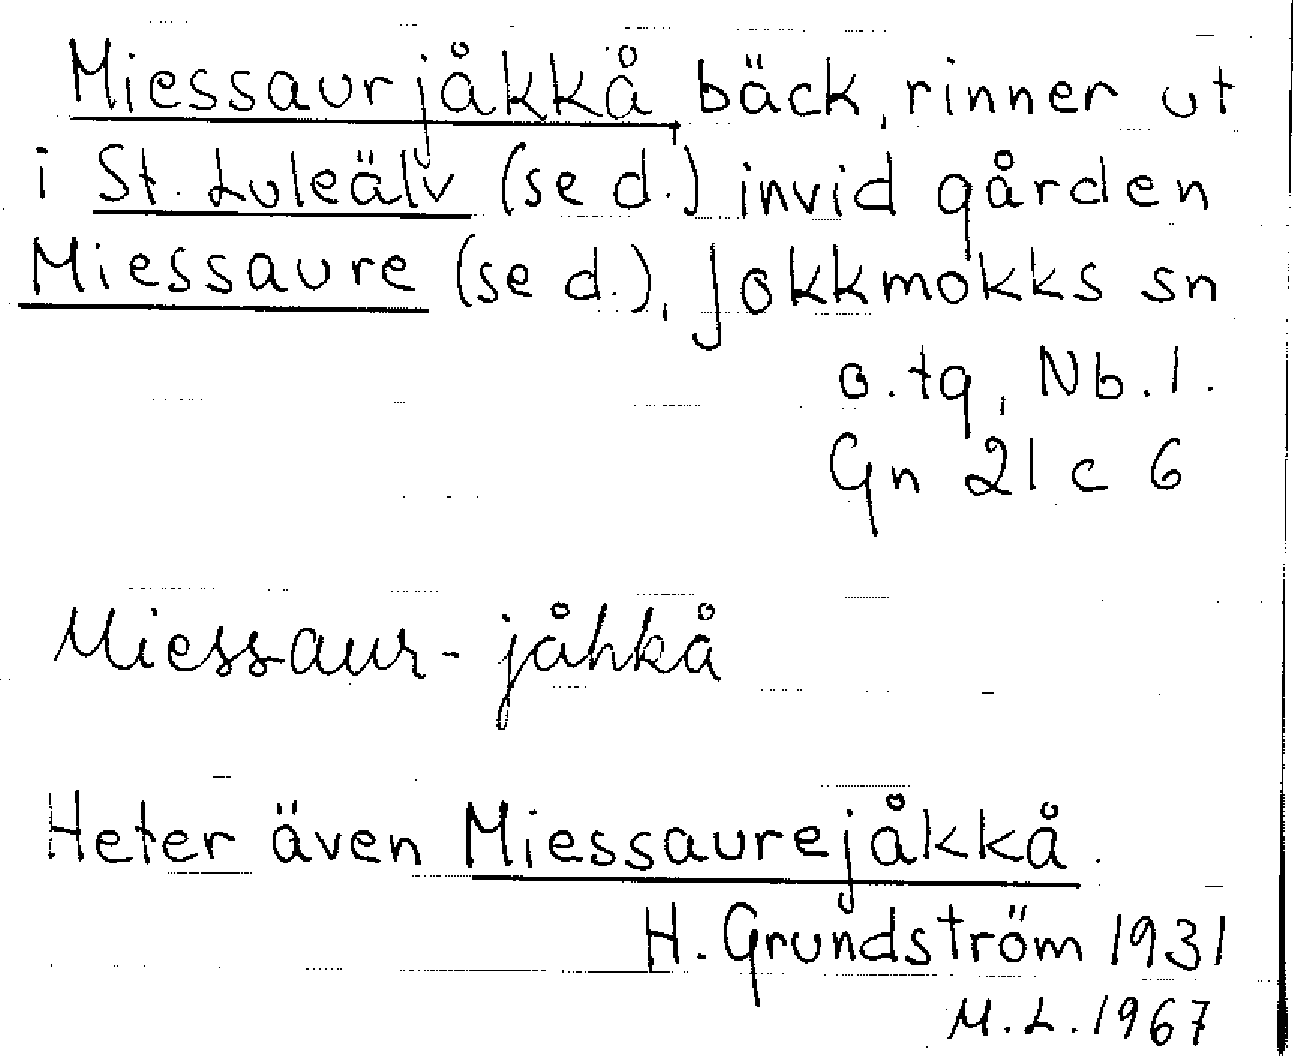 Miessaurjåkkå, bäck, rinner ut
i St. Luleälv (se d.) invid gården
Miessaure (se d.), Jokkmokks sn
o. tg, Nb. l.
Gn 21 c 6
Miessaur-jåhkå
Heter även Miessaurejåkkå.
H. Grundström 1931
M. L. 1967